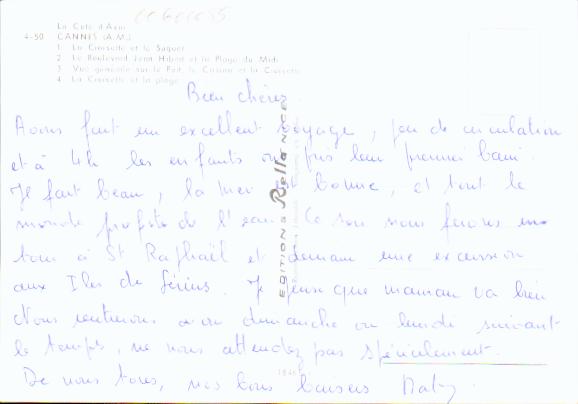 La Côte d'Azur
4-50 CANNES (A.M.)
1 La Croisette et le Suquet
2 Le Boulevard Jean Hibert et la Plage du Midi
3 Vue générale sur le Port, le Casino et la Croisette
4 La Croisette et la plage
Bien chères
Avons fait un excellent voyage, peu de circulation
et à 4h les enfants ont pris leur premier bain.
Il fait beau, la mer est bonne, et tout le
monde profite de l'eau. Ce soir nous ferons un
tour à St Raphaël et demain une excursion
aux Iles de Lérins. Je pense que maman va bien
Nous rentrerons dimanche ou lundi suivant
le temps, ne nous attendez pas spécialement.
De nous tous, nos bons baisers
EDITIONS Rella NICE